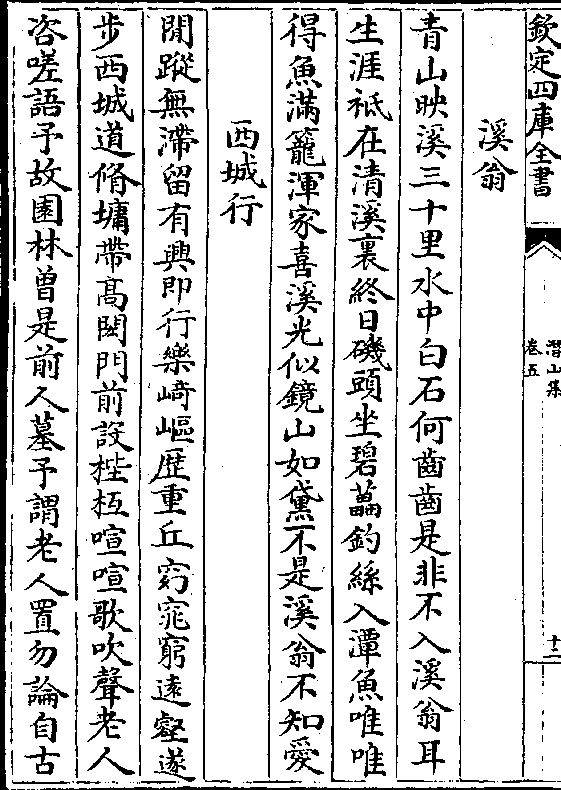 欽定四庫全書
潛山集
卷五
十二
溪翁
青山映溪三十里水中白石何齒齒是非不入溪翁耳
生涯袛在清溪裏終日磯頭坐碧蘤釣絲入潭魚唯唯
得魚滿籠渾家喜溪光似鏡山如黛不是溪翁不知愛
西城行
閒蹤無滯留有興即行樂﨑嶇歴重丘窈窕窮遠壑遂
步西城道脩墉帶髙閎門前設梐枑喧喧歌吹聲老人
咨嗟語予故園林曽是前人墓予謂老人置勿論自古